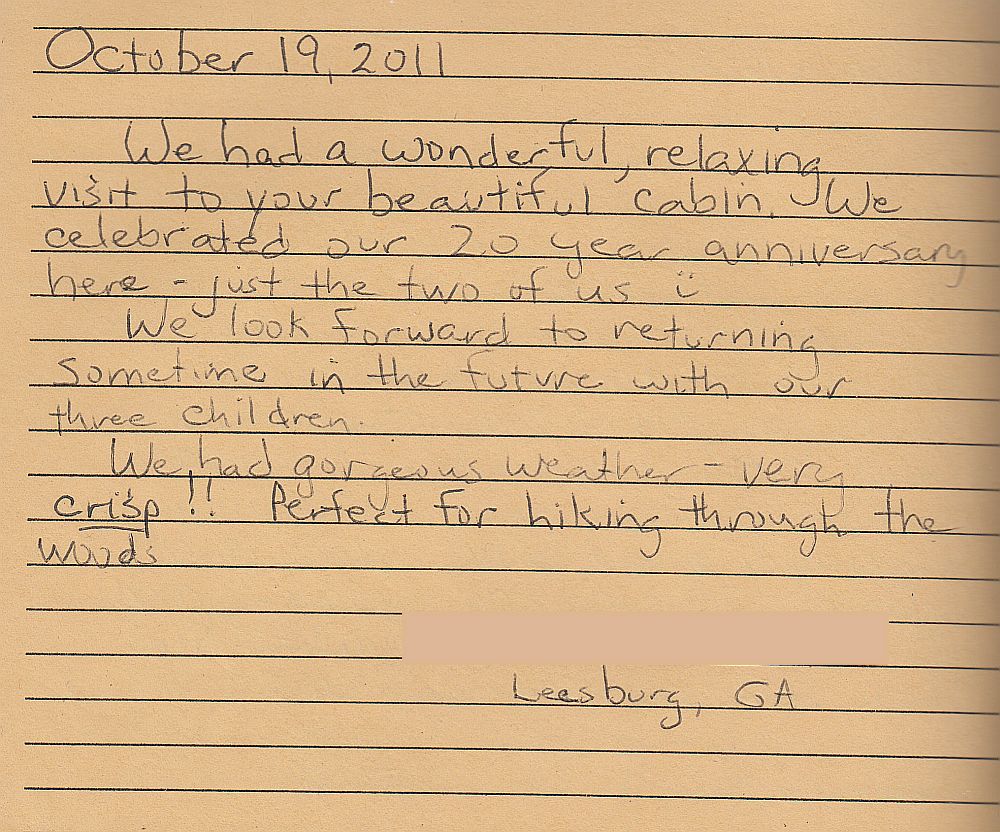 October 19, 2011
We had a wonderful, relaxing
visit to your beautiful cabin. We
celebrated our 20 year anniversary
here - just the two of us ü
We look forward to returning
sometime in the future with our
three children.
We had gorgeous weather - very
crisp!! Perfect for hiking through the
woods
Leesburg, GA